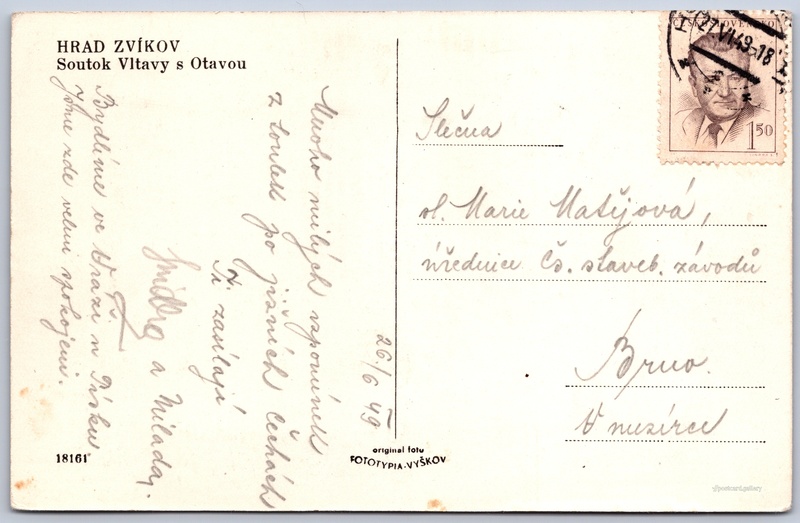 HRAD ZVÍKOV
Soutok Vltavy s Otavou
26./6 49
Mnoho milých vzpomínek
z toulek po jižních Čechách
Ti zasílají
a Milada.
Bydlíme ve Vrazi u Písku
Jsme zde velmi spokojeni.
18161
original foto
FOTOTYPIA-VYŠKOV
ČESKOSLOVENSKO
27.VI.49-18
1 50
Slečna
sl. Marie Matějová,
úřednice Čs. staveb. závodů
Brno.
V muzírce
postcard.gallery